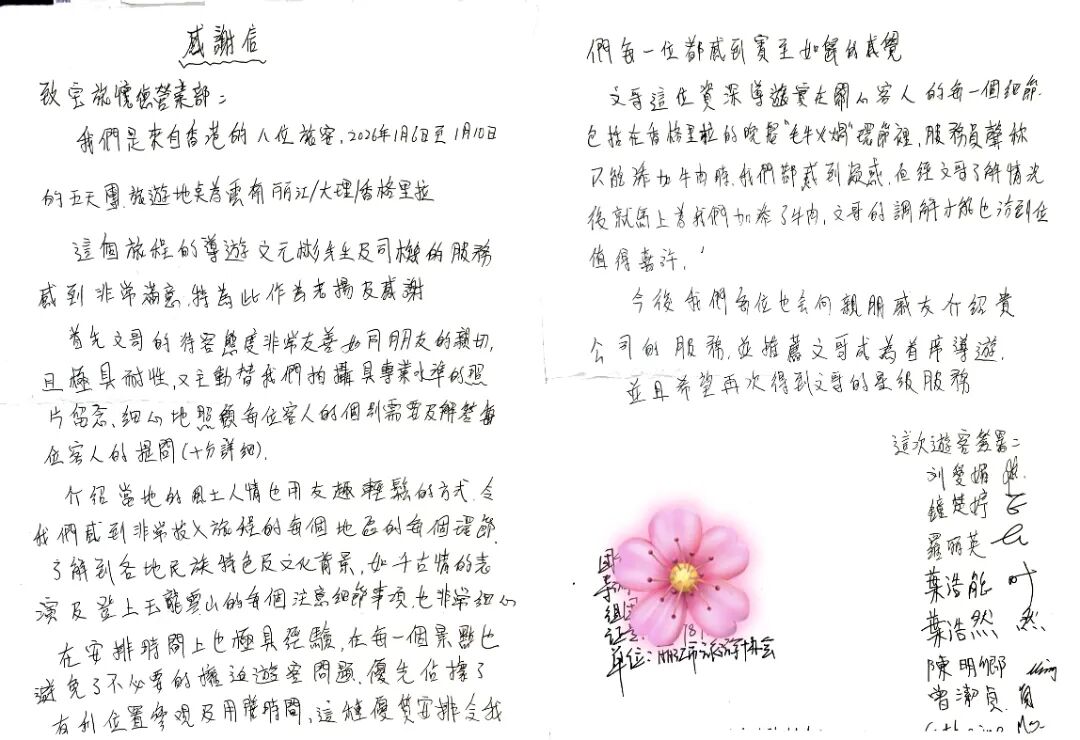 感謝信
致宝旅懷德營業部：
我們是來自香港的八位旅客，2026年1月6日至1月10日
的五天團，旅遊地点為雲南丽江/大理/香格里拉
這個旅程的導遊文元彬先生及司機的服務
感到非常滿意，特為此作為表揚及感謝
首先文哥的待客態度非常友善如同朋友的親切，
且極具耐性，又主動替我們拍攝具專業水準的照
片留念，細心地照顧每位客人的個別需要及解答每
位客人的提問(十分詳細)。
介紹當地的風土人情也用友趣輕鬆的方式，令
我們感到非常投入旅程的每個地區的每個環節，
了解到各地民族特色及文化背景，如千古情的表
演及登上玉龍雪山的每個注意細節事項，也非常細心
在安排時間上也極具經驗，在每一個景點也
避免了不必要的擁迫遊客問題，優先佔據了
有利位置參观及用膳時間，這種優質安排令我
們每一位都感到賓至如歸的感覺
文哥這位資深導遊實在關心客人的每一個細節，
包括在香格里拉的晚餐"牦牛火煱"環節裡，服務員聲称
只能添加牛肉時，我們都感到疑惑，但經文哥了解情況
後就馬上為我們加添了牛肉，文哥的調解才能也清到位
值得嘉許，
今後我們每位也会向親朋戚友介紹貴
公司的服務，並推薦文哥成為首席導遊，
並且希望再次得到文哥的星級服務
這次遊客簽署：
刘愛媚
鐘楚婷
羅丽英
葉浩能 叶
葉浩然 然
陳明鄉 Ming
曾潔貞 貞
团
导
組团
单位：丽江市旅游协会